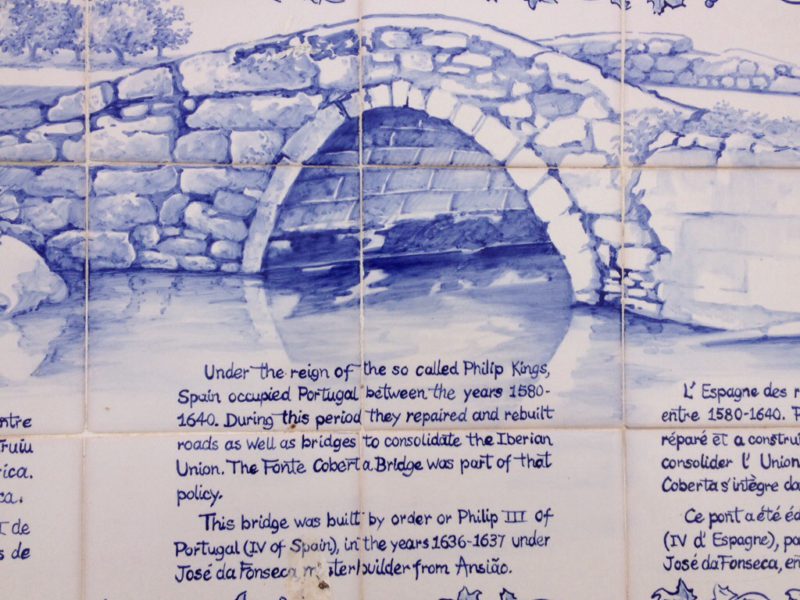 ntre
ruiu
rica.
ca.
de
s de
Under the reign of the so called Philip Kings,
Spain occupied Portugal between the years 1580-
1640. During this period they repaired and rebuilt
roads as well as bridges to consolidate the Iberian
Union. The Fonte Coberta Bridge was part of that
policy.
This bridge was built by order or Philip III of
Portugal (IV of Spain), in the years 1636-1637 under
José da Fonseca master builder from Ansião.
L' Espagne des r
entre 1580-1640. P
réparé et a construi
consolider l' Union
Coberta s'intègre da
Ce pont a été éd
(IV d' Espagne), pa
José da Fonseca, en